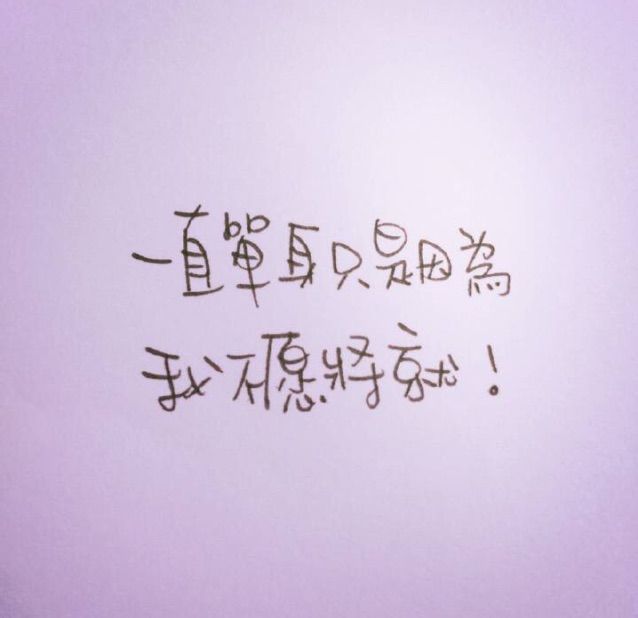 一直單身只是因為
我不愿將就！